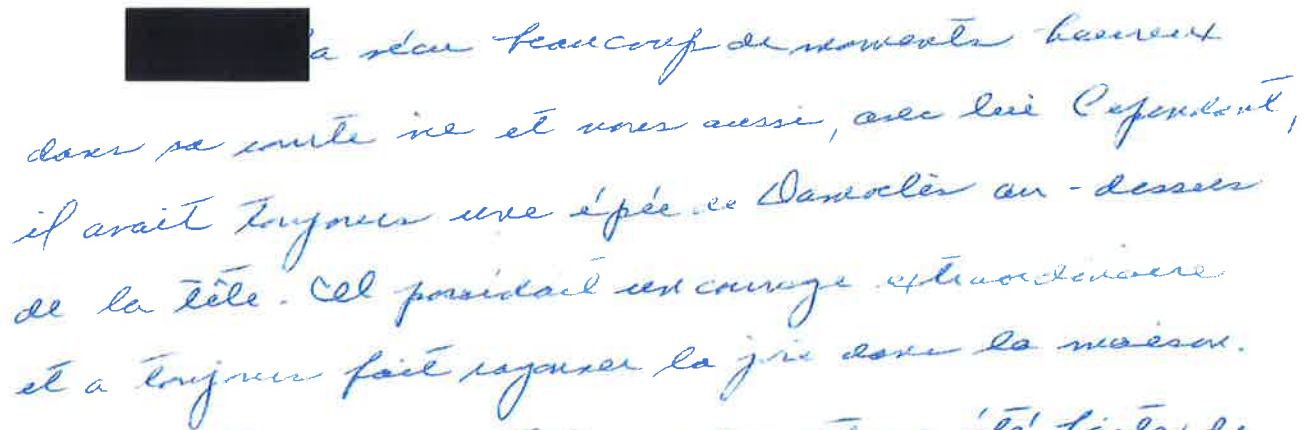 a vécu beaucoup de moments heureux
dans sa courte vie et nous aussi, avec lui Cependant,
il avait toujours une épée de Damoclès au-dessus
de la tête. Il possédait un courage extraordinaire
et a toujours fait rayonner la joie dans la maison.
été